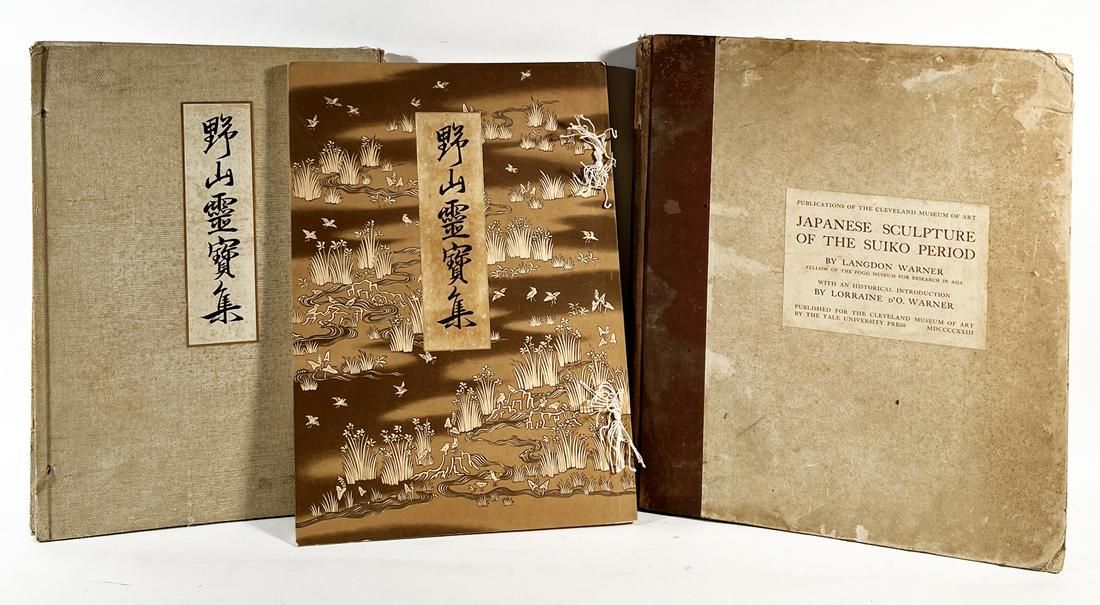 野山靈寶集
野山靈寶集
PUBLICATIONS OF THE CLEVELAND MUSEUM OF ART
JAPANESE SCULPTURE
OF THE SUIKO PERIOD
BY LANGDON WARNER
FELLOW OF THE FOGG MUSEUM FOR RESEARCH IN ASIA
WITH AN HISTORICAL INTRODUCTION
BY LORRAINE D'O. WARNER
PUBLISHED FOR THE CLEVELAND MUSEUM OF ART
BY THE YALE UNIVERSITY PRESS MDCCCCXXIII